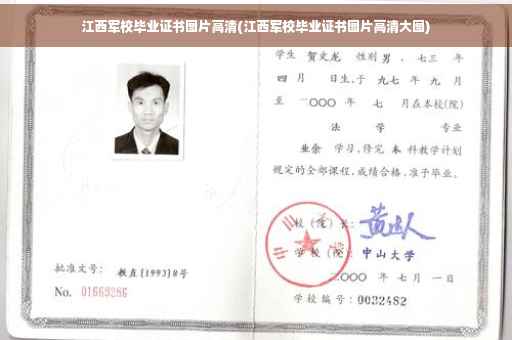 江西军校毕业证书图片高清(江西军校毕业证书图片高清大图)
学生 贺文龙 性别 男 、七三 年
四 月 日生,于 九七 年 九 月
至 二〇〇〇 年 七 月在本校(院)
法 学 专业
业余 学习,修完 本 科教学计划
规定的全部课程,成绩合格,准予毕业。
校(院)长:
学校(院): 中山大学
二〇〇〇 年 七 月 一 日
学校编号: 0032482
批准文号: 教直(1993)8号
No. 01669286